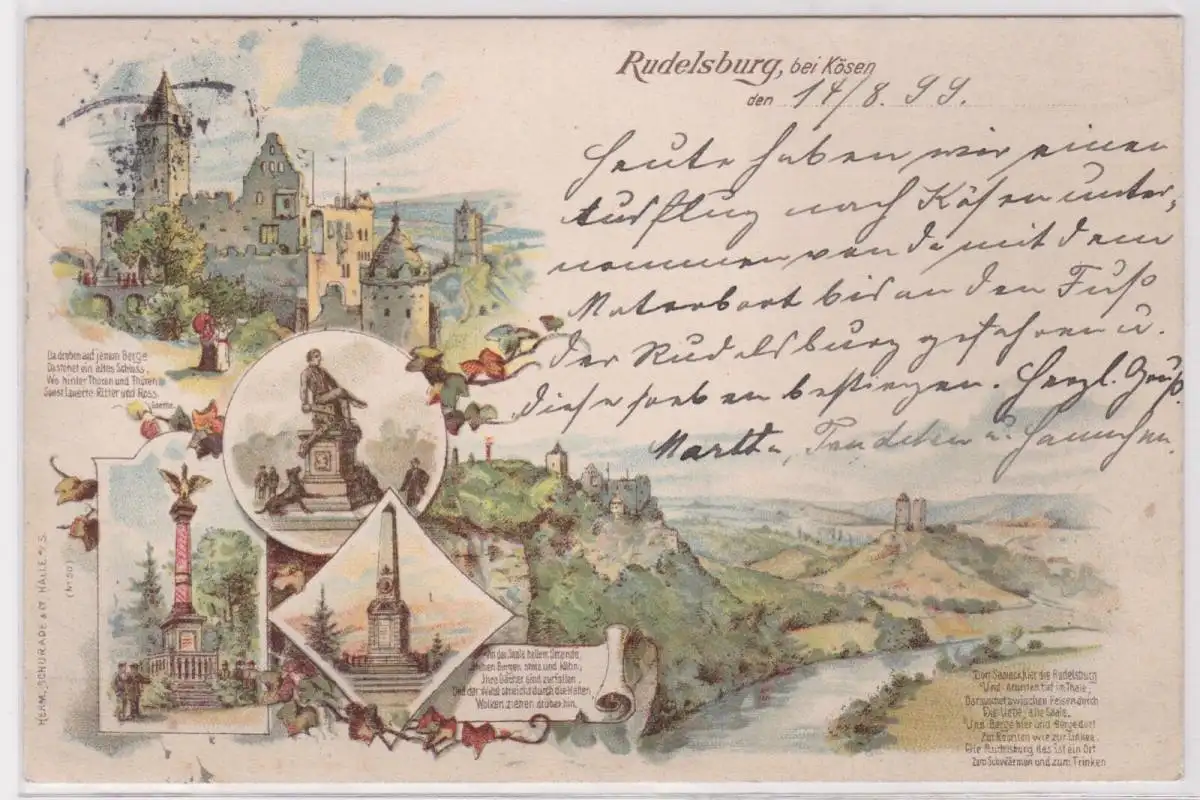 Rudelsburg, bei Kösen
den 14/8. 99.
Heute haben wir einen
Ausflug nach Kösen unter-
nommen von da mit dem
Motorboot bis an den Fuß
der Rudelsburg gefahren u.
diese soeben bestiegen. Herzl. Gruß
Martha, u. Hannchen
Da droben auf jenem Berge
Da stehet ein altes Schloss,
Wo hinter Thoren und Thüren
Sonst Lauerte Ritter und Ross.
Goethe.
An der Saale hellem Strande,
stehen Burgen stolz und kühn,
Ihre Dächer sind zerfallen,
Und der Wind streicht durch die Hallen,
Wolken ziehen drüber hin.
Dort Saaleck, hier die Rudelsburg
Und drunten tief im Thale,
Da rauschet zwischen Felsen durch
Die liebe, alte Saale.
Und Berge hier und Berge dort
Zur Rechten wie zur Linken
Die Rudelsburg das ist ein Ort
Zum Schwärmen und zum Trinken
HERM. SCHURADE & Co HALLE a/S.